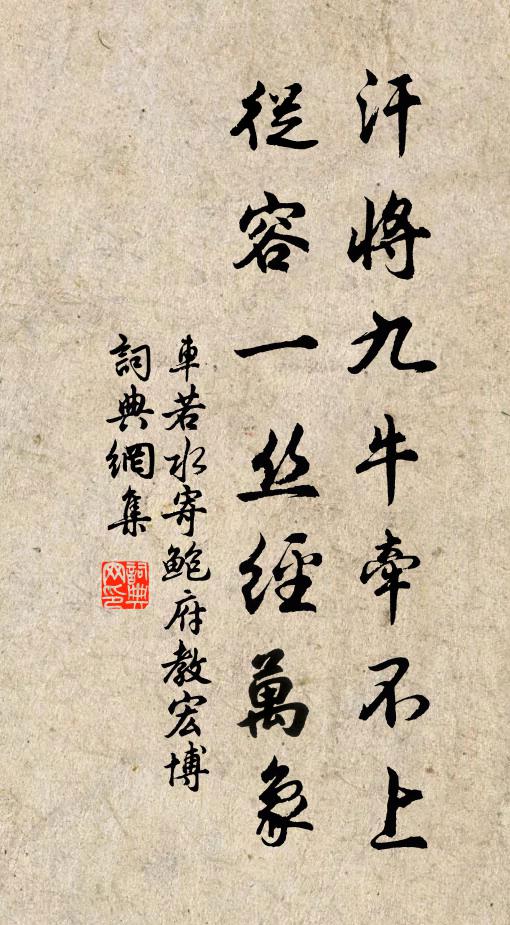 汗將九牛牽不上
從容一丝經萬象
車若水寄鲍府教宏博
詞典網集
詞典网印